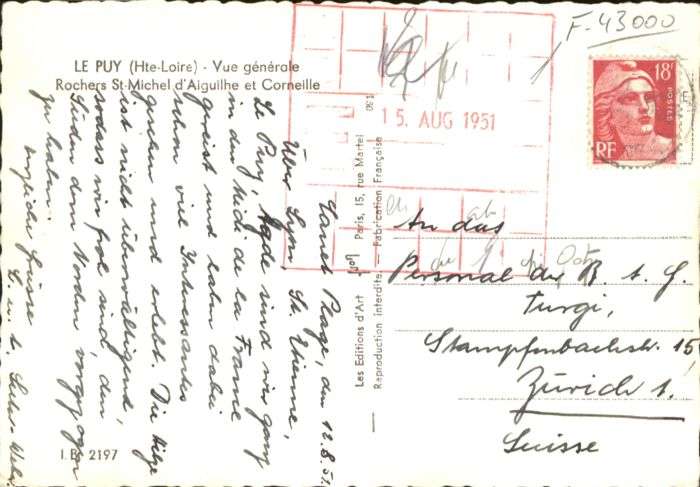 F-43000
LE PUY (Hte-Loire) - Vue générale
Rochers St-Michel d'Aiguilhe et Corneille
18F
POSTES
RF
15. AUG 1951
Plage, den 12.8.51
Über Lyon, St. Etienne,
Le Puy, Agde sind wir ganz
in den Midi de la France
gereist und haben dabei
schon viel Interessantes
gesehen und erlebt. Die Hitze
ist nicht überwältigend,
sodass wir froh sind, den
Süden dem Norden vorgezogen
zu haben.
Grüsse
Les Editions d'Art Yvon Paris, 15, rue Martel
Reproduction interdite. — Fabrication Française
An das
Personal der B. t. G.
Turgi,
Stampfenbachstr. 15
Zürich 1.
Suisse
I.B. 2197